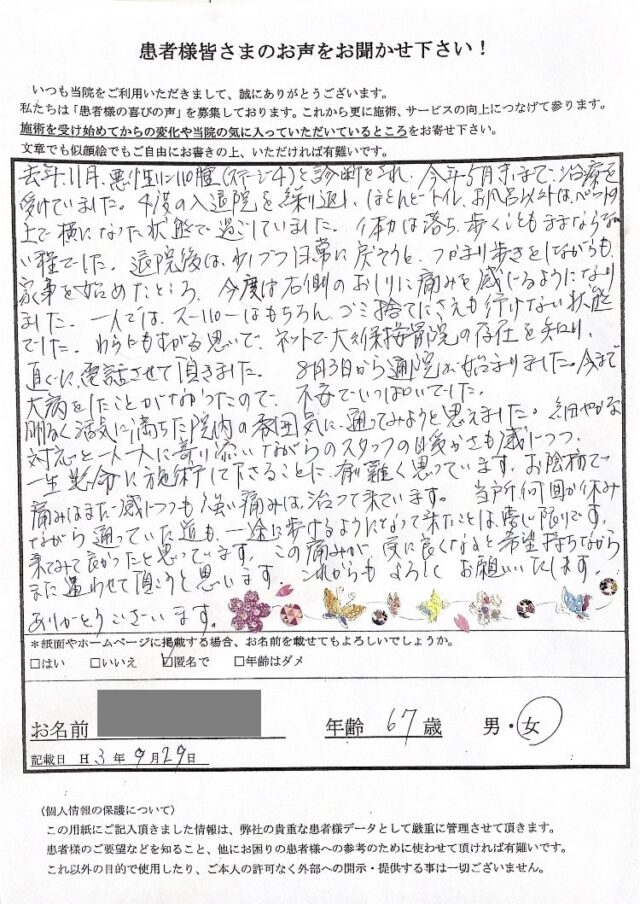 患者様皆さまのお声をお聞かせ下さい！
いつも当院をご利用いただきまして、誠にありがとうございます。
私たちは「患者様の喜びの声」を募集しております。これから更に施術、サービスの向上につなげて参ります。
施術を受け始めてからの変化や当院の気に入っていただいているところをお寄せ下さい。
文章でも似顔絵でもご自由にお書きの上、いただければ有難いです。
去年、11月、悪性リンパ腫(ステージ4)と診断をされ、今年5月末まで、治療を
受けていました。4度の入退院を繰り返し、ほとんどトイレ、お風呂以外はベットの
上で横になった状態で過ごしていました。体力は落ち、歩くこともままならな
い程でした。退院後は、少しづつ日常に戻そうと、つかまり歩きをしながらも、
家事を始めたところ、今度は右側のおしりに痛みを感じるようになり
ました。一人では、スーパーはもちろん、ゴミ捨てにさえも行けない状態
でした。わらにもすがる思いで、ネットで大久保接骨院の存在を知り、
直ぐに電話させて頂きました。 8月3日から通院は始まりました。今まで
大病をしたことがなかったので、不安でいっぱいでした。
明るく活気に満ちた院内の雰囲気に、通ってみようと思えました。細やかな
対応と一人一人に寄り添いながらのスタッフの温かさも感じつつ、
一生懸命に施術して下さることに、有難く思っています。お陰様で
痛みはまだ感じつつも強い痛みは、治って来ています。 当所、何回か休み
ながら通っていた道も、一途に歩けるようになって来たことは、嬉しい限りです。
来てみて良かったと思っています。この痛みが、更に良くなると希望持ちながら
また通わせて頂こうと思います。これからもよろしくお願いいたします。
ありがとうございます。
＊紙面やホームページに掲載する場合、お名前を載せてもよろしいでしょうか。
□はい □いいえ ☑匿名で □年齢はダメ
お名前 年齢 67歳 男・女
記載日 H 3年 9月 29日
〈個人情報の保護について〉
この用紙にご記入頂きました情報は、弊社の貴重な患者様データとして厳重に管理させて頂きます。
患者様のご要望などを知ること、他にお困りの患者様への参考のために使わせて頂ければ有難いです。
これ以外の目的で使用したり、ご本人の許可なく外部への開示・提供する事は一切ございません。